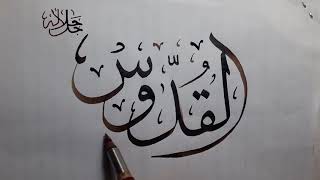 القُدُّوس
جل جلاله